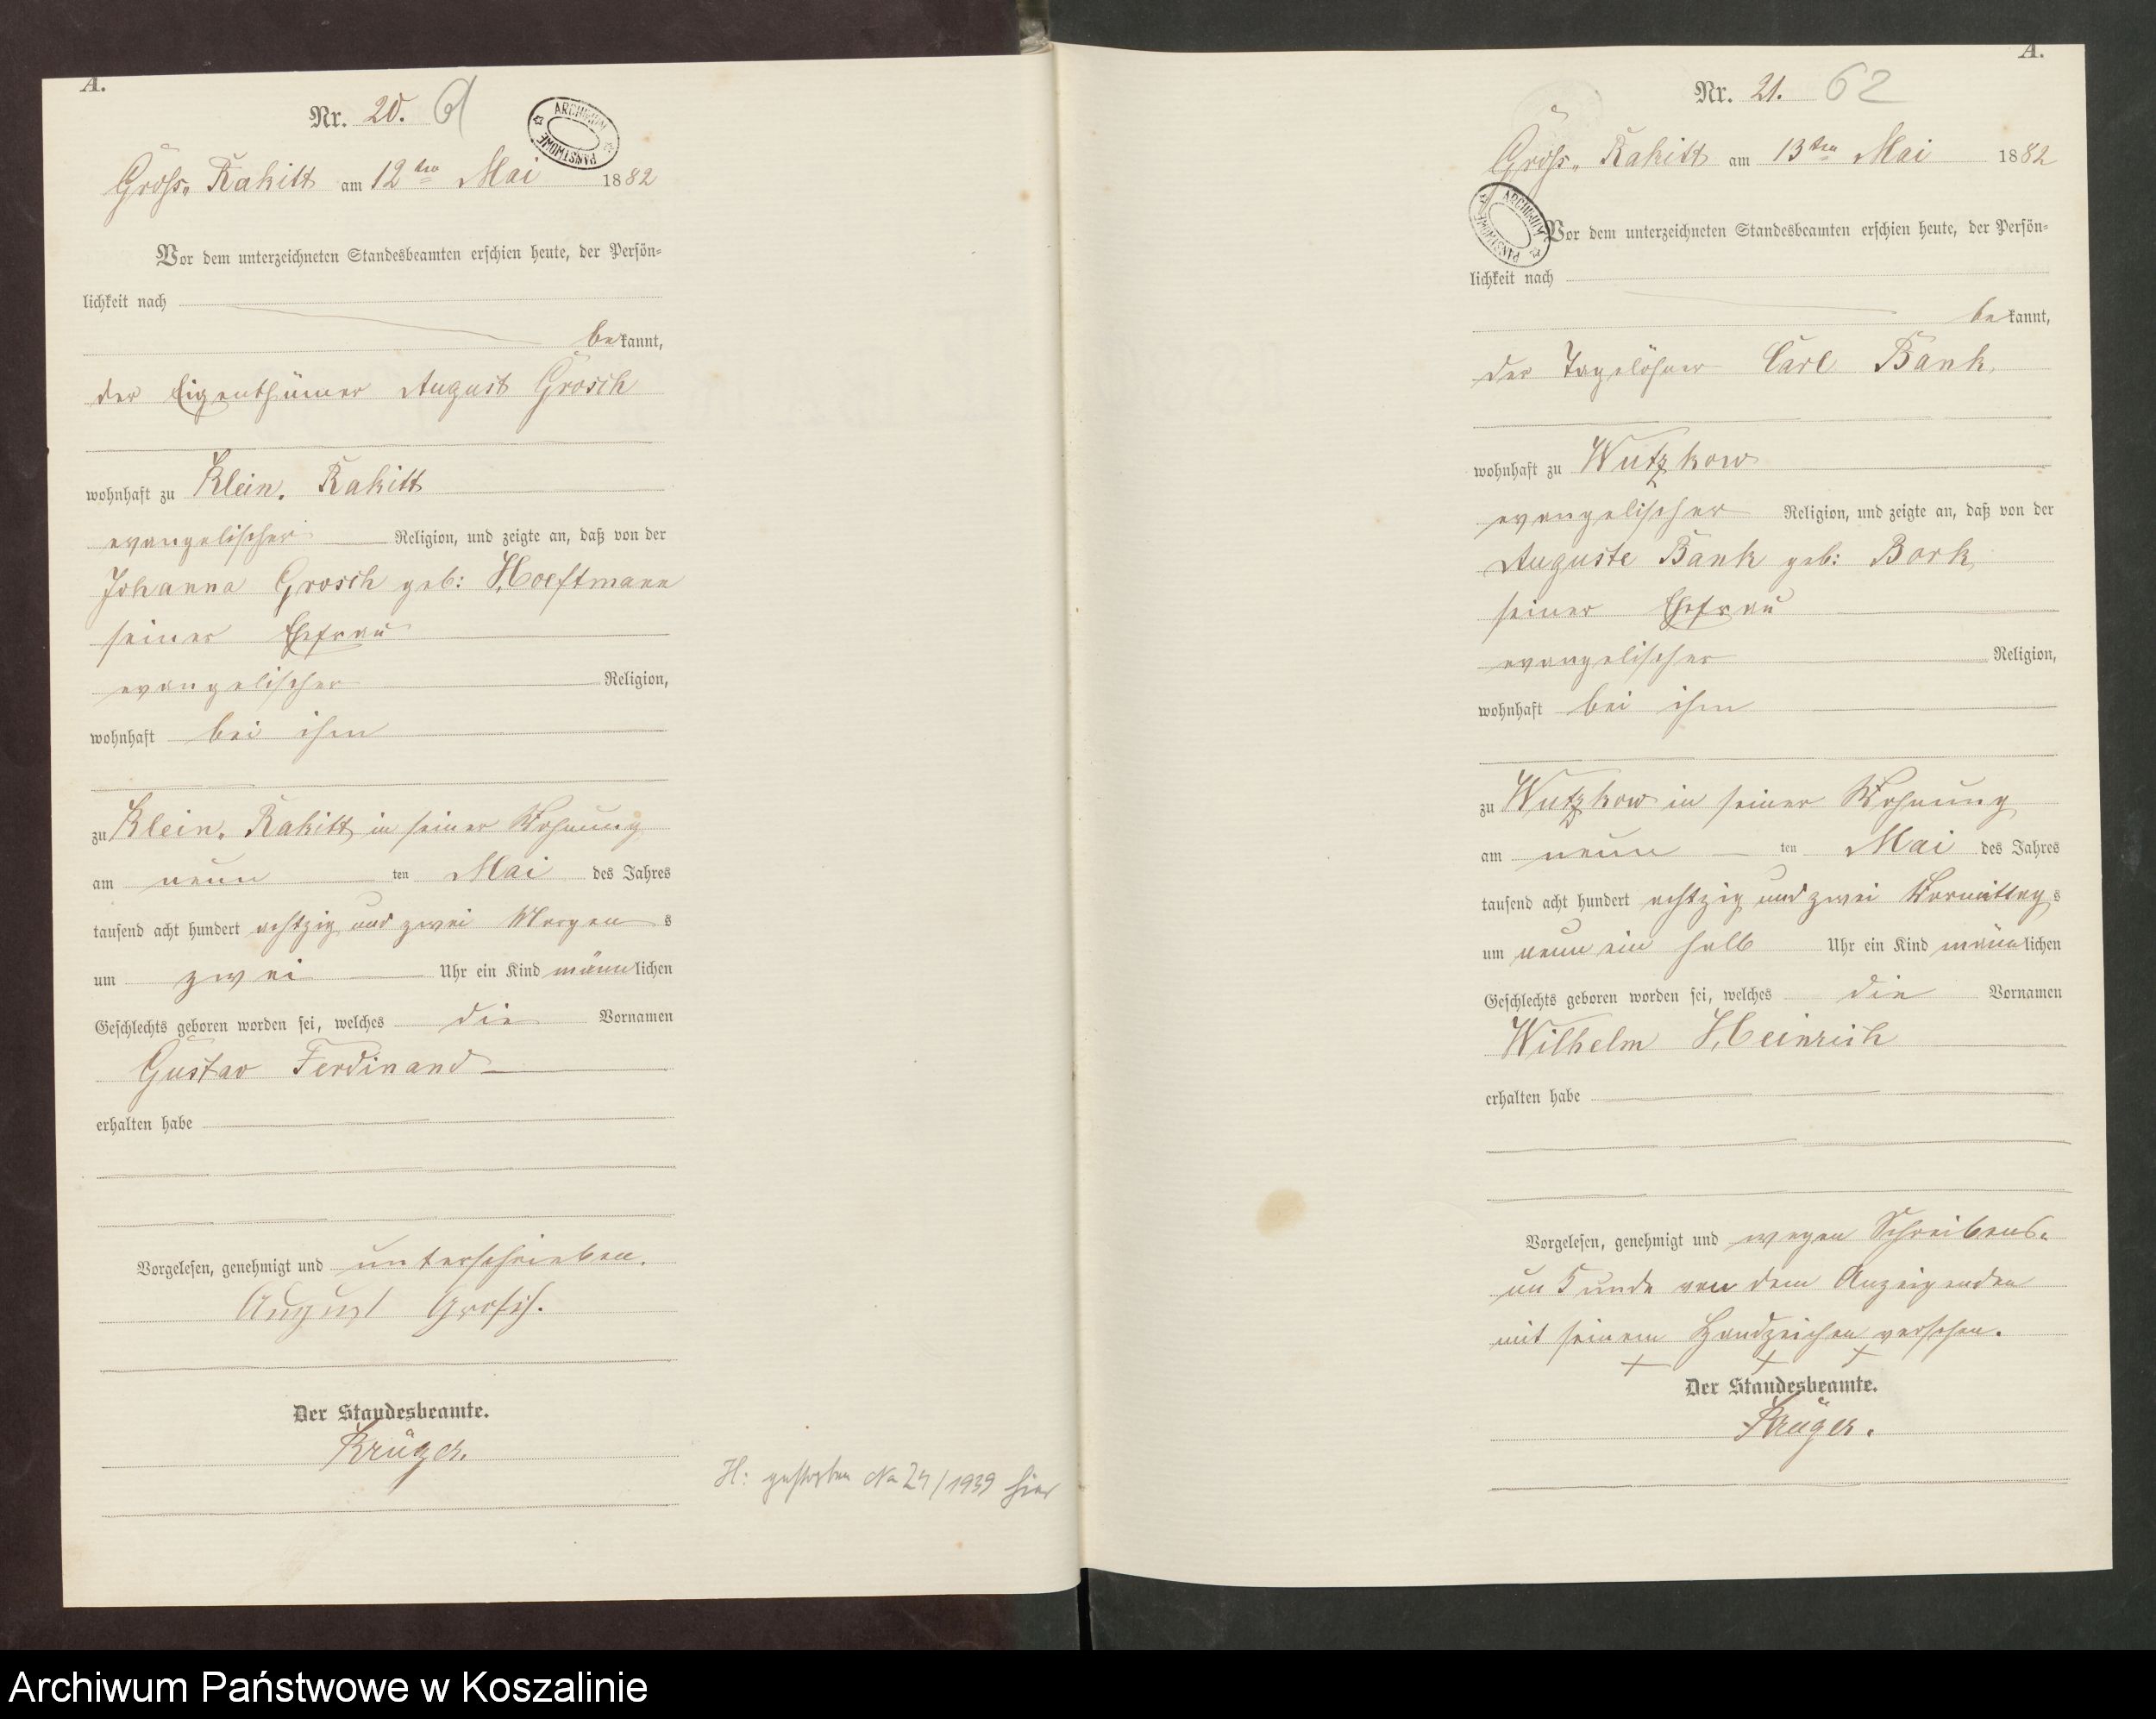 A.
Nr. 20. 61
ARCHIWUM PAŃSTWOWE
Gross. Rakitt am 12ten Mai 1882
Vor dem unterzeichneten Standesbeamten erschien heute, der Persön-
lichkeit nach
bekannt,
der Eigenthümer August Grosch
wohnhaft zu Klein. Rakitt
evangelischer Religion, und zeigte an, daß von der
Johanna Grosch geb: Hoeftmann
seiner Ehefrau
evangelischer Religion,
wohnhaft bei ihm
zu Klein. Rakitt in seiner Wohnung
am neun ten Mai des Jahres
tausend acht hundert achtzig und zwei Morgens
um zwei Uhr ein Kind männlichen
Geschlechts geboren worden sei, welches die Vornamen
Gustav Ferdinand
erhalten habe
Vorgelesen, genehmigt und unterschrieben.
August Grosch.
Der Standesbeamte.
Krüger.
H: gestorben No 24/1939 hier
A.
Nr. 21. 62
Gross. Rakitt am 13ten Mai 1882
ARCHIWUM PAŃSTWOWE
Vor dem unterzeichneten Standesbeamten erschien heute, der Persön-
lichkeit nach
bekannt,
der Tagelöhner Carl Bank,
wohnhaft zu Wutzkow
evangelischer Religion, und zeigte an, daß von der
Auguste Bank geb: Bork,
seiner Ehefrau
evangelischer Religion,
wohnhaft bei ihm
zu Wutzkow in seiner Wohnung
am neun ten Mai des Jahres
tausend acht hundert achtzig und zwei Vormittags
um neun ein halb Uhr ein Kind männlichen
Geschlechts geboren worden sei, welches die Vornamen
Wilhelm Heinrich
erhalten habe
Vorgelesen, genehmigt und wegen Schreibens-
unkunde von dem Anzeigenden
mit seinem Handzeichen versehen.
+ + +
Der Standesbeamte.
Krüger.
Archiwum Państwowe w Koszalinie